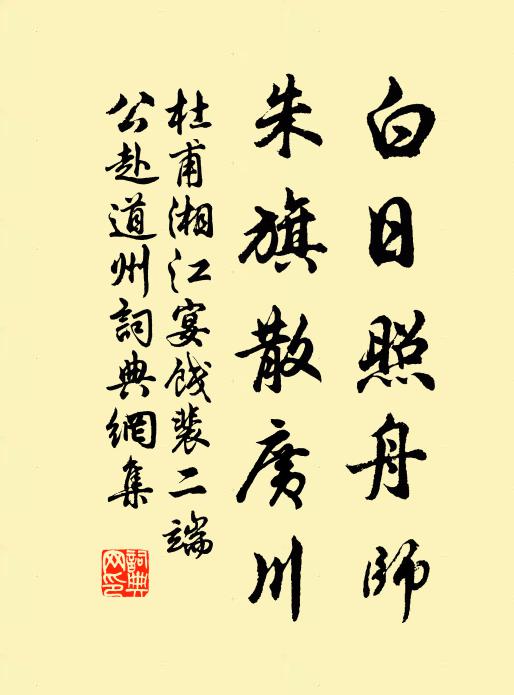 白日照舟師
朱旗散廣川
杜甫湘江宴餞裴二端
公赴道州詞典網集
詞典
网印